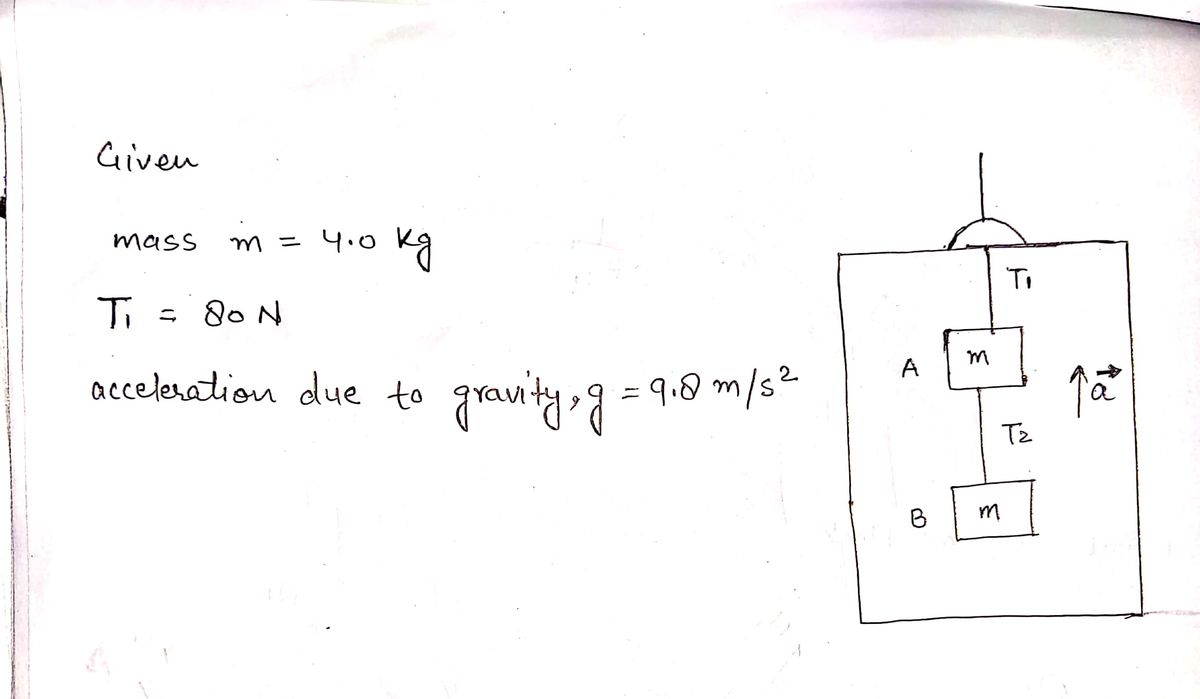 Given
mass m = 4.0 kg
T₁ = 80 N
acceleration due to gravity, g = 9.8 m/s²
T₁
m
A
a⃗
T₂
B
m